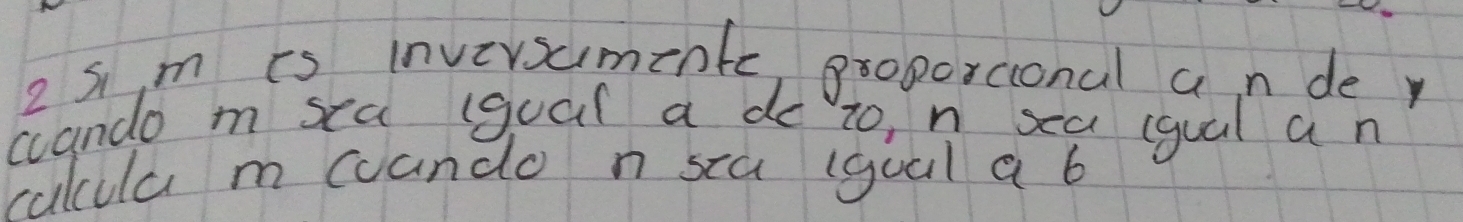 2 Si m es inversamente proporcional a n de y
cuando m sea igual a de 20, n sea igual a n
calcula m cuando n sea igual a 6